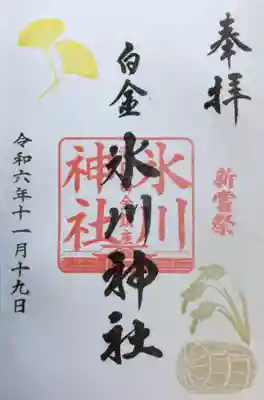 奉拝
新嘗祭
白金
氷川神社
氷川
神社
令和六年十一月十九日